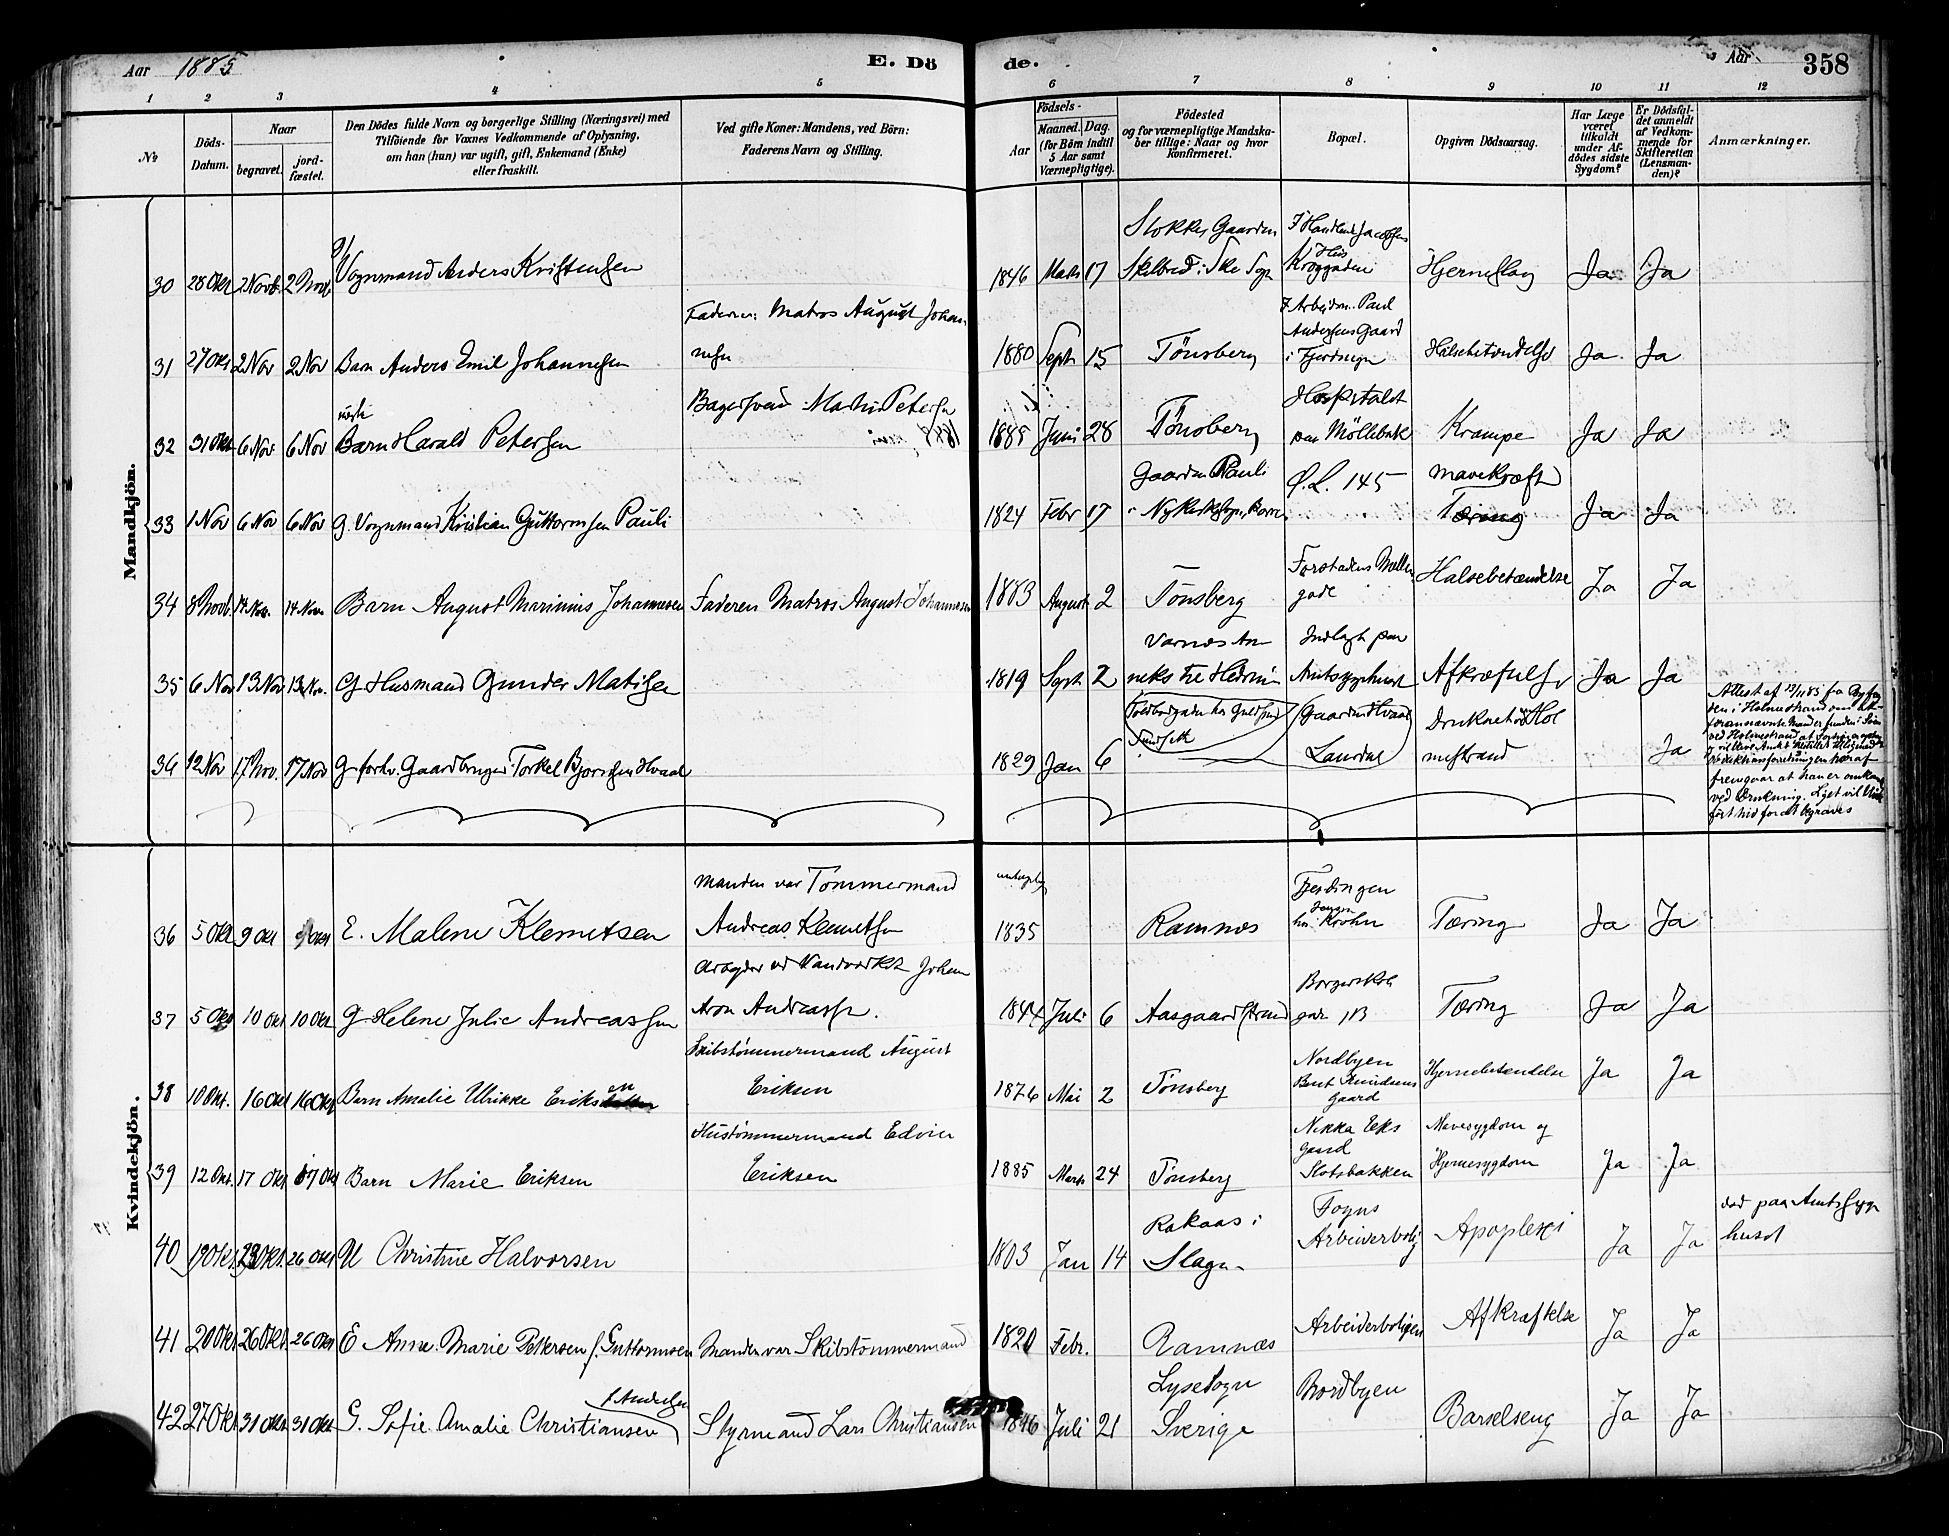 Aar 1885 E. Dö de. Aar 358
1 2 3 4 5 6 7 8 9 10 11 12
No
Döds-Datum.
Naar
begravet. jordfæstet.
Den Dödes fulde Navn og borgerlige Stilling (Næringsvei) med
Tilföiende for Vaxnes Vedkommende af Oplysning,
om han (hun) var ugift, gift, Enkemand (Enke)
eller fraskilt.
Ved gifte Koner: Mandens, ved Börn:
Faderens Navn og Stilling.
Födsels-
Aar Maaned. Dag.
(for Börn indtil
5 Aar samt
Værnepligtige).
Födested
og for værnepligtige Mandska-
ber tillige: Naar og hvor
konfirmeret.
Bopæl.
Opgiven Dödsaarsag.
Har Læge
været
tilkaldt
under Af-
dödes sidste
Sygdom?
Er Dödsfal-
det anmeldt
af Vedkom-
mende for
Skifteretten
(Lensman-
den)?
Anmærkninger.
Mandkjön.
30 28 Okt 2 Novb. 2 Novb g/ Vognmand Anders Kristensen 1846 Marts 17 Slokker Gaarden Hjerneslag Ja Ja
31 27 Okt 2 Nov 2 Nov Barn Anders Emil Johannesen Faderen: Matros August Johan-
nesen 1880 Sept 15 Tönsberg Arbeidsm. Paul
Andersens Gaard
i Fjerdingen Halsebetændelse Ja Ja
32 31 Okt 6 Nov 6 Nov Barn Harald Petersen Bagersvend Martin Petersen 1885 Juni 28 Tönsberg Hospitalet
paa Möllebak Krampe Ja Ja
33 1 Nov 6 Nov 6 Nov g. Vognmand Kristian Guttormsen Pauli 1824 Febr 17 Gaarden Pauli
i Ø. L. 145 Mavekræft
Tæring Ja Ja
34 8 Novb. 14 Nov. 14 Nov. Barn August Marinius Johannesen Faderen Matros August Johannesen 1883 August 2 Tönsberg Forstadens Møllegade Halsebetændelse Ja Ja
35 6 Nov 13 Nov 13 Nov. G Husmand Gunder Matisen 1819 Sept 2 Varnæs An
neks til Indlagt paa
Amtssygehuset Afkræftelse Ja Ja
36 12 Nov 17 Nov. 17 Nov g forhv. Gaardbruger Torkel Bjørnsen Hvaal 1829 Jan 6 Gaarden Hvaal
Laurdal Druknet ved Hol
mestrand Ja
Attest af 13/11 85 fra Byfog
den i Holmestrand om at
ved Holmestrand
fremgaar at han er omkom
ved Drukning. Liget vil blive
fört hid for at begraves
Kvindekjön.
36 5 Okt 9 Okt 9 Okt E. Malene Klemetsen Manden var Tømmermand
Andreas Klemetsen 1835 Ramnes Fjerdingen
hos Krohn Tæring Ja Ja
37 5 Okt 10 Okt 10 Okt g Helene Julie Andreassen Arbeider ved Vandværket Johan
Aron Andreassen. 1844 Juli 6 Aasgaardstrand Borgerskole
gar. Tæring Ja Ja
38 10 Okt. 16 Okt 16 Okt Barn Amalie Ulrikke Eriksen Skibstømmermand August
Eriksen 1876 Mai 2 Tønsberg Nordbyen
Bent Knudsens
Gaard Hjernebetændelse Ja Ja
39 12 Okt. 17 Okt 17 Okt Barn Marie Eriksen Hustømmermand Edvin
Eriksen 1885 Marts 24 Tønsberg Nikka Eks
Gaard
Slotsbakken Mavesygdom og
Hjernesygdom Ja Ja
40 19 Okt. 23 Okt. 26 Okt U Christine Halvorsen 1803 Jan 14 Rakaas i
Slagen Foyns
Arbeiderbolig Apoplexi Ja Ja død paa Amtssyge
huset
41 20 Okt 26 Okt. 26 Okt E Anne Marie Pettersen f. Guttormsen Manden var Skibstømmermand 1820 Febr. Ramnæs Arbeiderboligen Afkræftelse Ja Ja
42 27 Okt 31 Okt. 31 Okt G. Sofie Amalie Christiansen f. Andersen Styrmand Lars Christiansen 1846 Juli 21 Lysetogn
Sverige Nordbyen Barselseng Ja Ja